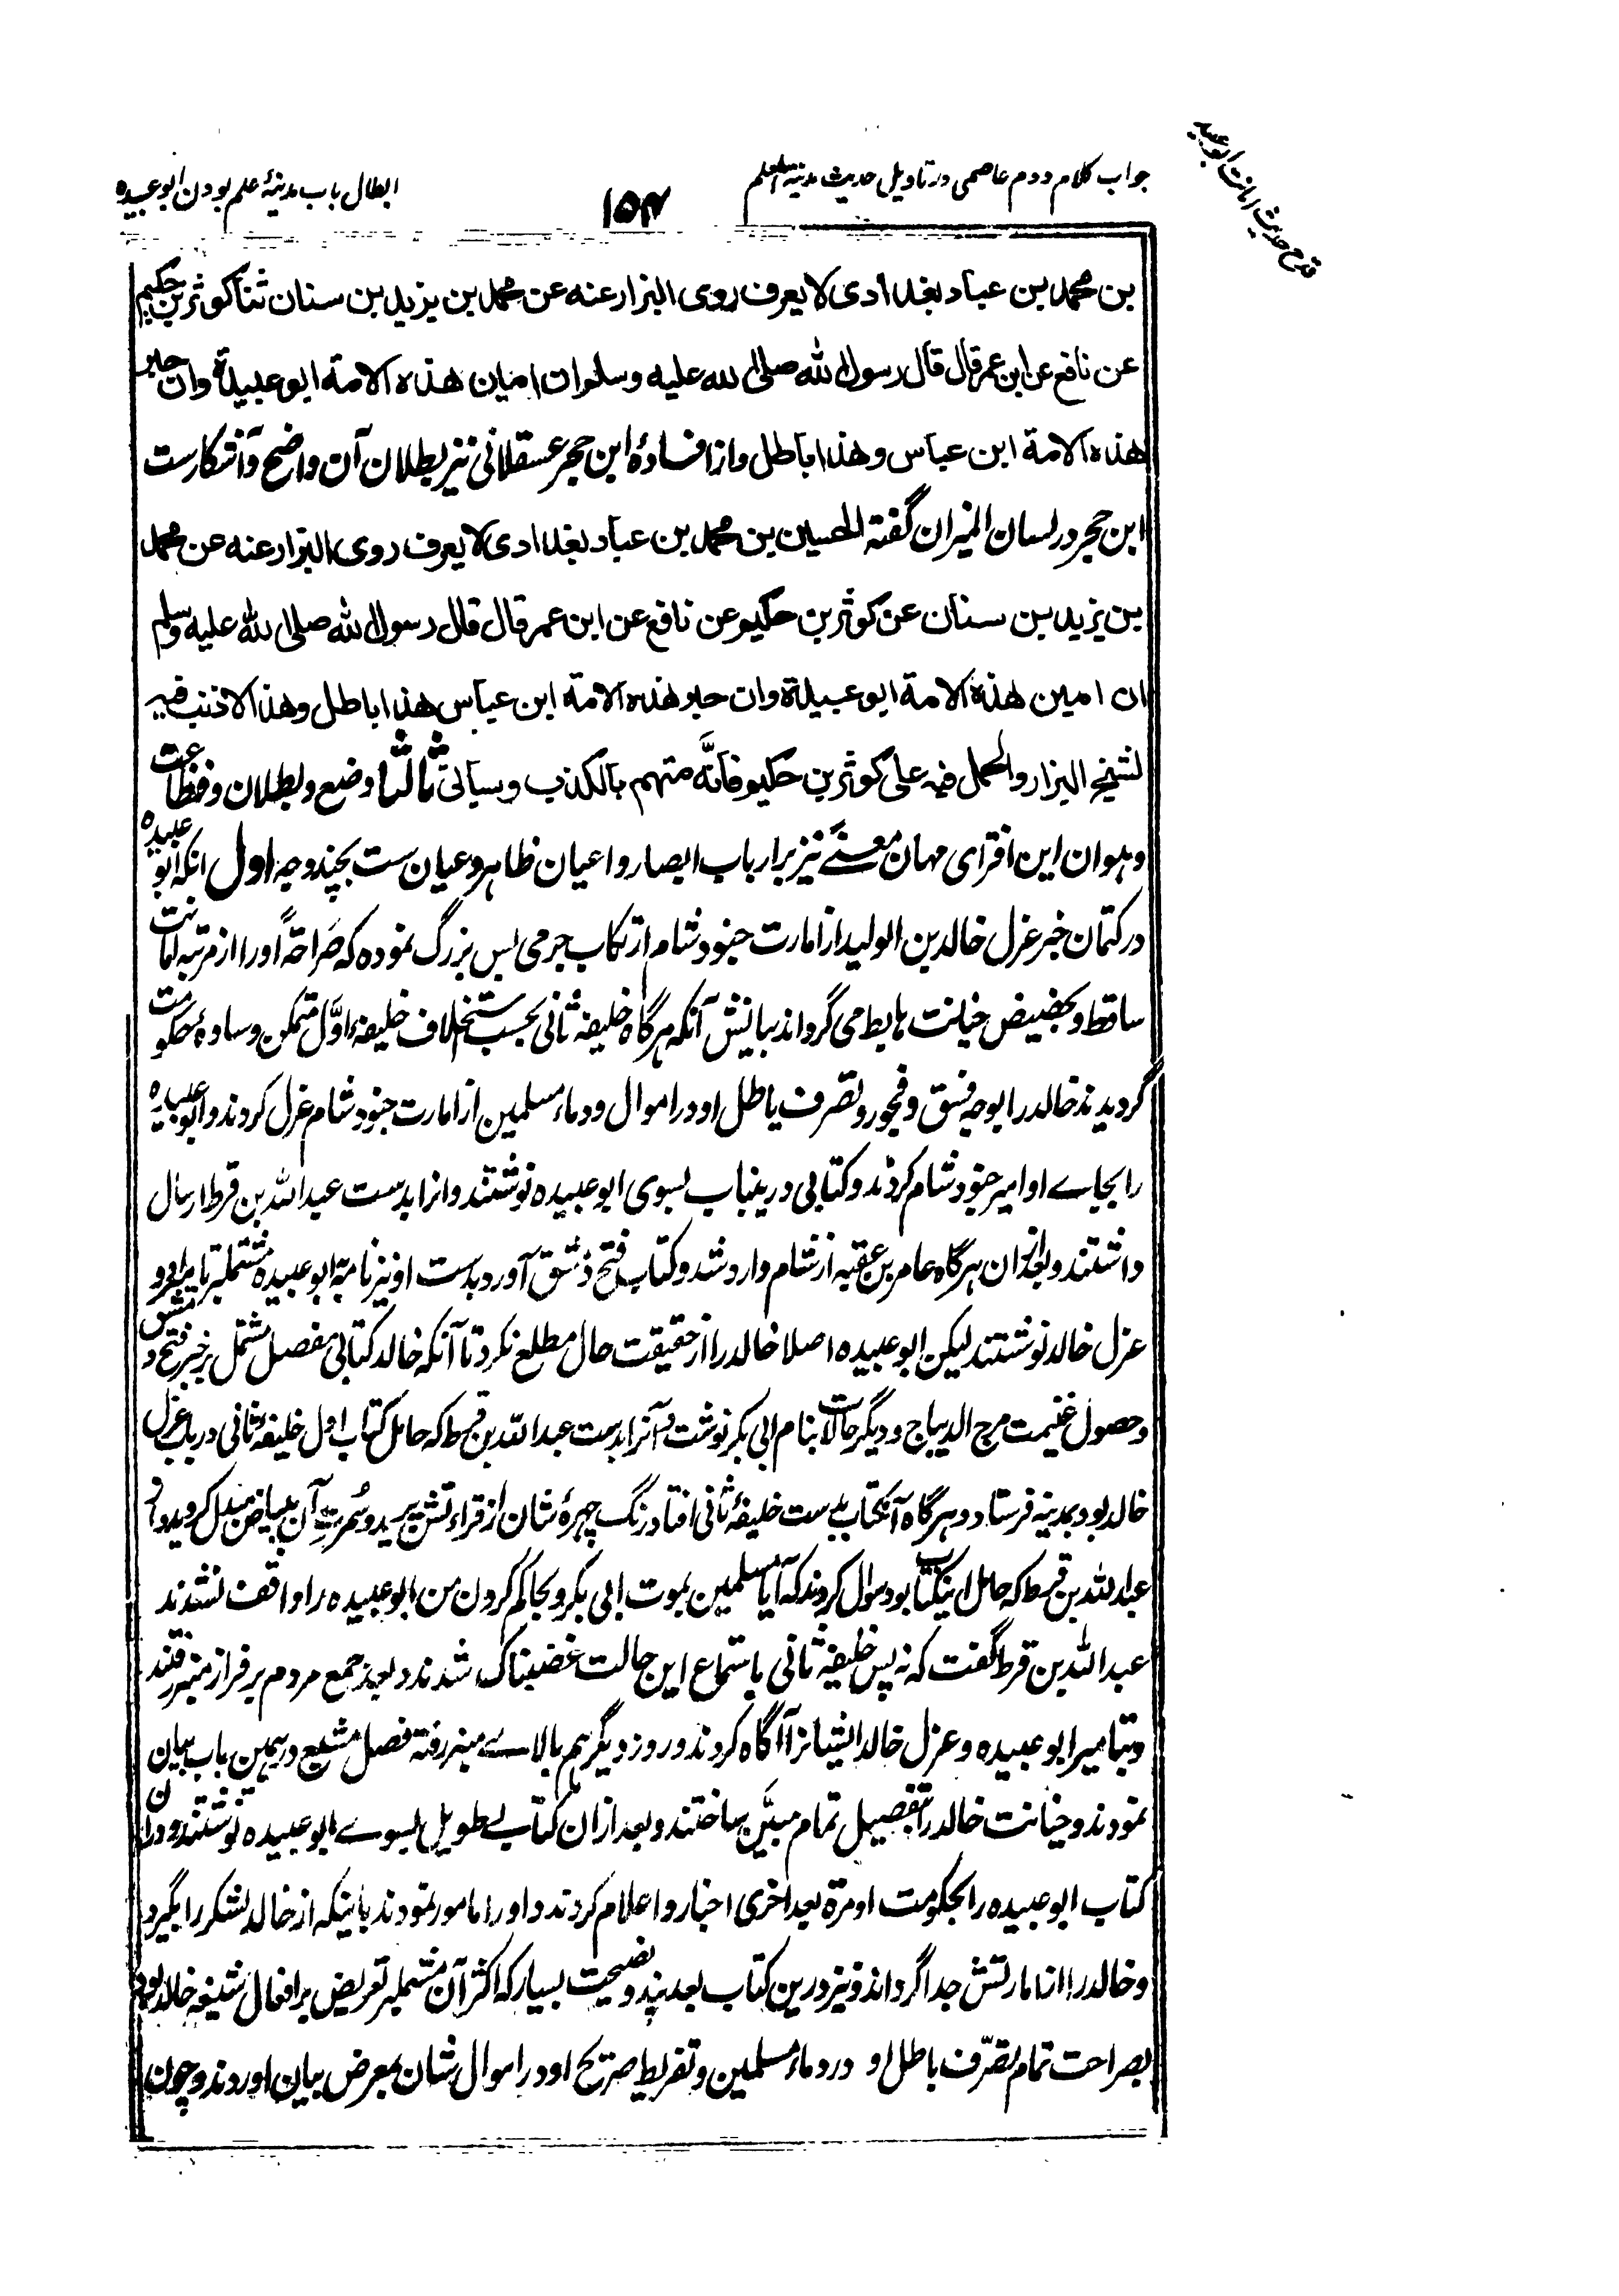 جواب کلام دوم عاصمی در تاویل حدیث مدینة العلم
۱۵۴
ابطال باب مدینۂ علم بودن ابو عبیده
قدح حدیث امانت ابو عبیده
بن محمد بن عباد بغدادی لا یعرف روی البزار عنه عن محمد بن یزید بن سنان ثنا کوثر بن حکیم
عن نافع عن ابن عمر قال قال رسول الله صلی الله علیه وسلم ان امین هذه الامة ابو عبیدة وان حبر
هذه الامة ابن عباس وهذا باطل و از افادۂ ابن حجر عسقلانی نیز بطلان آن واضح و آشکارست
ابن حجر در لسان المیزان گفته الحسین بن محمد بن عباد بغدادی لا یعرف روی البزار عنه عن محمد
بن یزید بن سنان عن کوثر بن حکیم عن نافع عن ابن عمر قال قال رسول الله صلی الله علیه وسلم
ان امین هذه الامة ابو عبیدة وان حبر هذه الامة ابن عباس هذا باطل وهذا لا ذنب فیه
لشیخ البزار والحمل فیه علی کوثر بن حکیم فانَّه متهم بالکذب وسیاتی ثالثا وضع و بطلان و فظاعت
و هوان این افترای مهان معنےً نیز بر ارباب ابصار و اعیان ظاهر و عیان ست بچند وجه اول آنکه ابو عبیده
در کتمان خبر عزل خالد بن الولید از امارت جنود شام ارتکاب جرمی بس بزرگ نموده که صَراحةً او را از مرتبه امانت
ساقط و بحضیض خیانت هابط می گرداند بیانش آنکه هرگاه خلیفه ثانی بحسب استخلاف خلیفۂ اوَّل متمکن وسادۂ حکومت
گردیدند خالد را بوجه فسق و فجور و تصرف باطل او در اموال و دماء مسلمین از امارت جنود شام عزل کردند و ابو عبیده
را بجاے او امیر جنود شام کردند و کتابی درینباب بسوی ابو عبیده نوشتند و آنرا بدست عبد الله بن قرط ارسال
داشتند و بعد ازان هرگاه عامر بن عقبه از شام وارد شد و کتاب فتح دمشق آورد بدست او نیز نامۂ بابو عبیده مشتملبر تامیر او و
عزل خالد نوشتند لیکن ابو عبیده اصلا خالد را از حقیقت حال مطلع نکرد تا آنکه خالد کتابی مفصل مشتمل بر خبر فتح دمشق
و حصول غنیمت مرج الدیباج و دیگر حالات بنام ابی بکر نوشت و آنرا بدست عبد الله بن قرط که حامل کتاب اول خلیفۂ ثانی در باب عزل
خالد بود بمدینه فرستاد و هرگاه آنکتاب بدست خلیفۂ ثانی افتاد رنگ چهرۂ شان از قراءتش پرید و سُمرتِ آن ببیاض مبدل گردید و از
عبد الله بن قرط که حامل اینکتاب بود سوال کردند که آیا مسلمین بموت ابی بکر و حاکم کردن من ابو عبیده را واقف نشدند
عبد الله بن قرط گفت که نه پس خلیفۂ ثانی باستماع این حالت غضبناک شدند و بعد جمع مردم بر فراز منبر رفتند
و بتامیر ابو عبیده و عزل خالد ایشانرا آگاه کردند و روز دیگر هم بالاے منبر رفته فصل مشبع در همین باب بیان
نمودند و خیانت خالد را بتفصیل تمام مبیَّن ساختند و بعد ازان کتابے طویل بسوے ابو عبیده نوشتند و دران
کتاب ابو عبیده را بحکومت او مرة بعد اخری اخبار و اعلام کردند و او را مامور نمودند باینکه از خالد لشکر را بگیرد
و خالد را از امارتش جدا گرداند و نیز درین کتاب بعد پند و نصیحت بسیار که اکثر آن مشتملبر تعریض بر افعال شنیعۂ خالد بود
بصراحت تمام تصرّف باطل او در دماء مسلمین و تفریط صریح او در اموال شان بمعرض بیان آوردند و چون